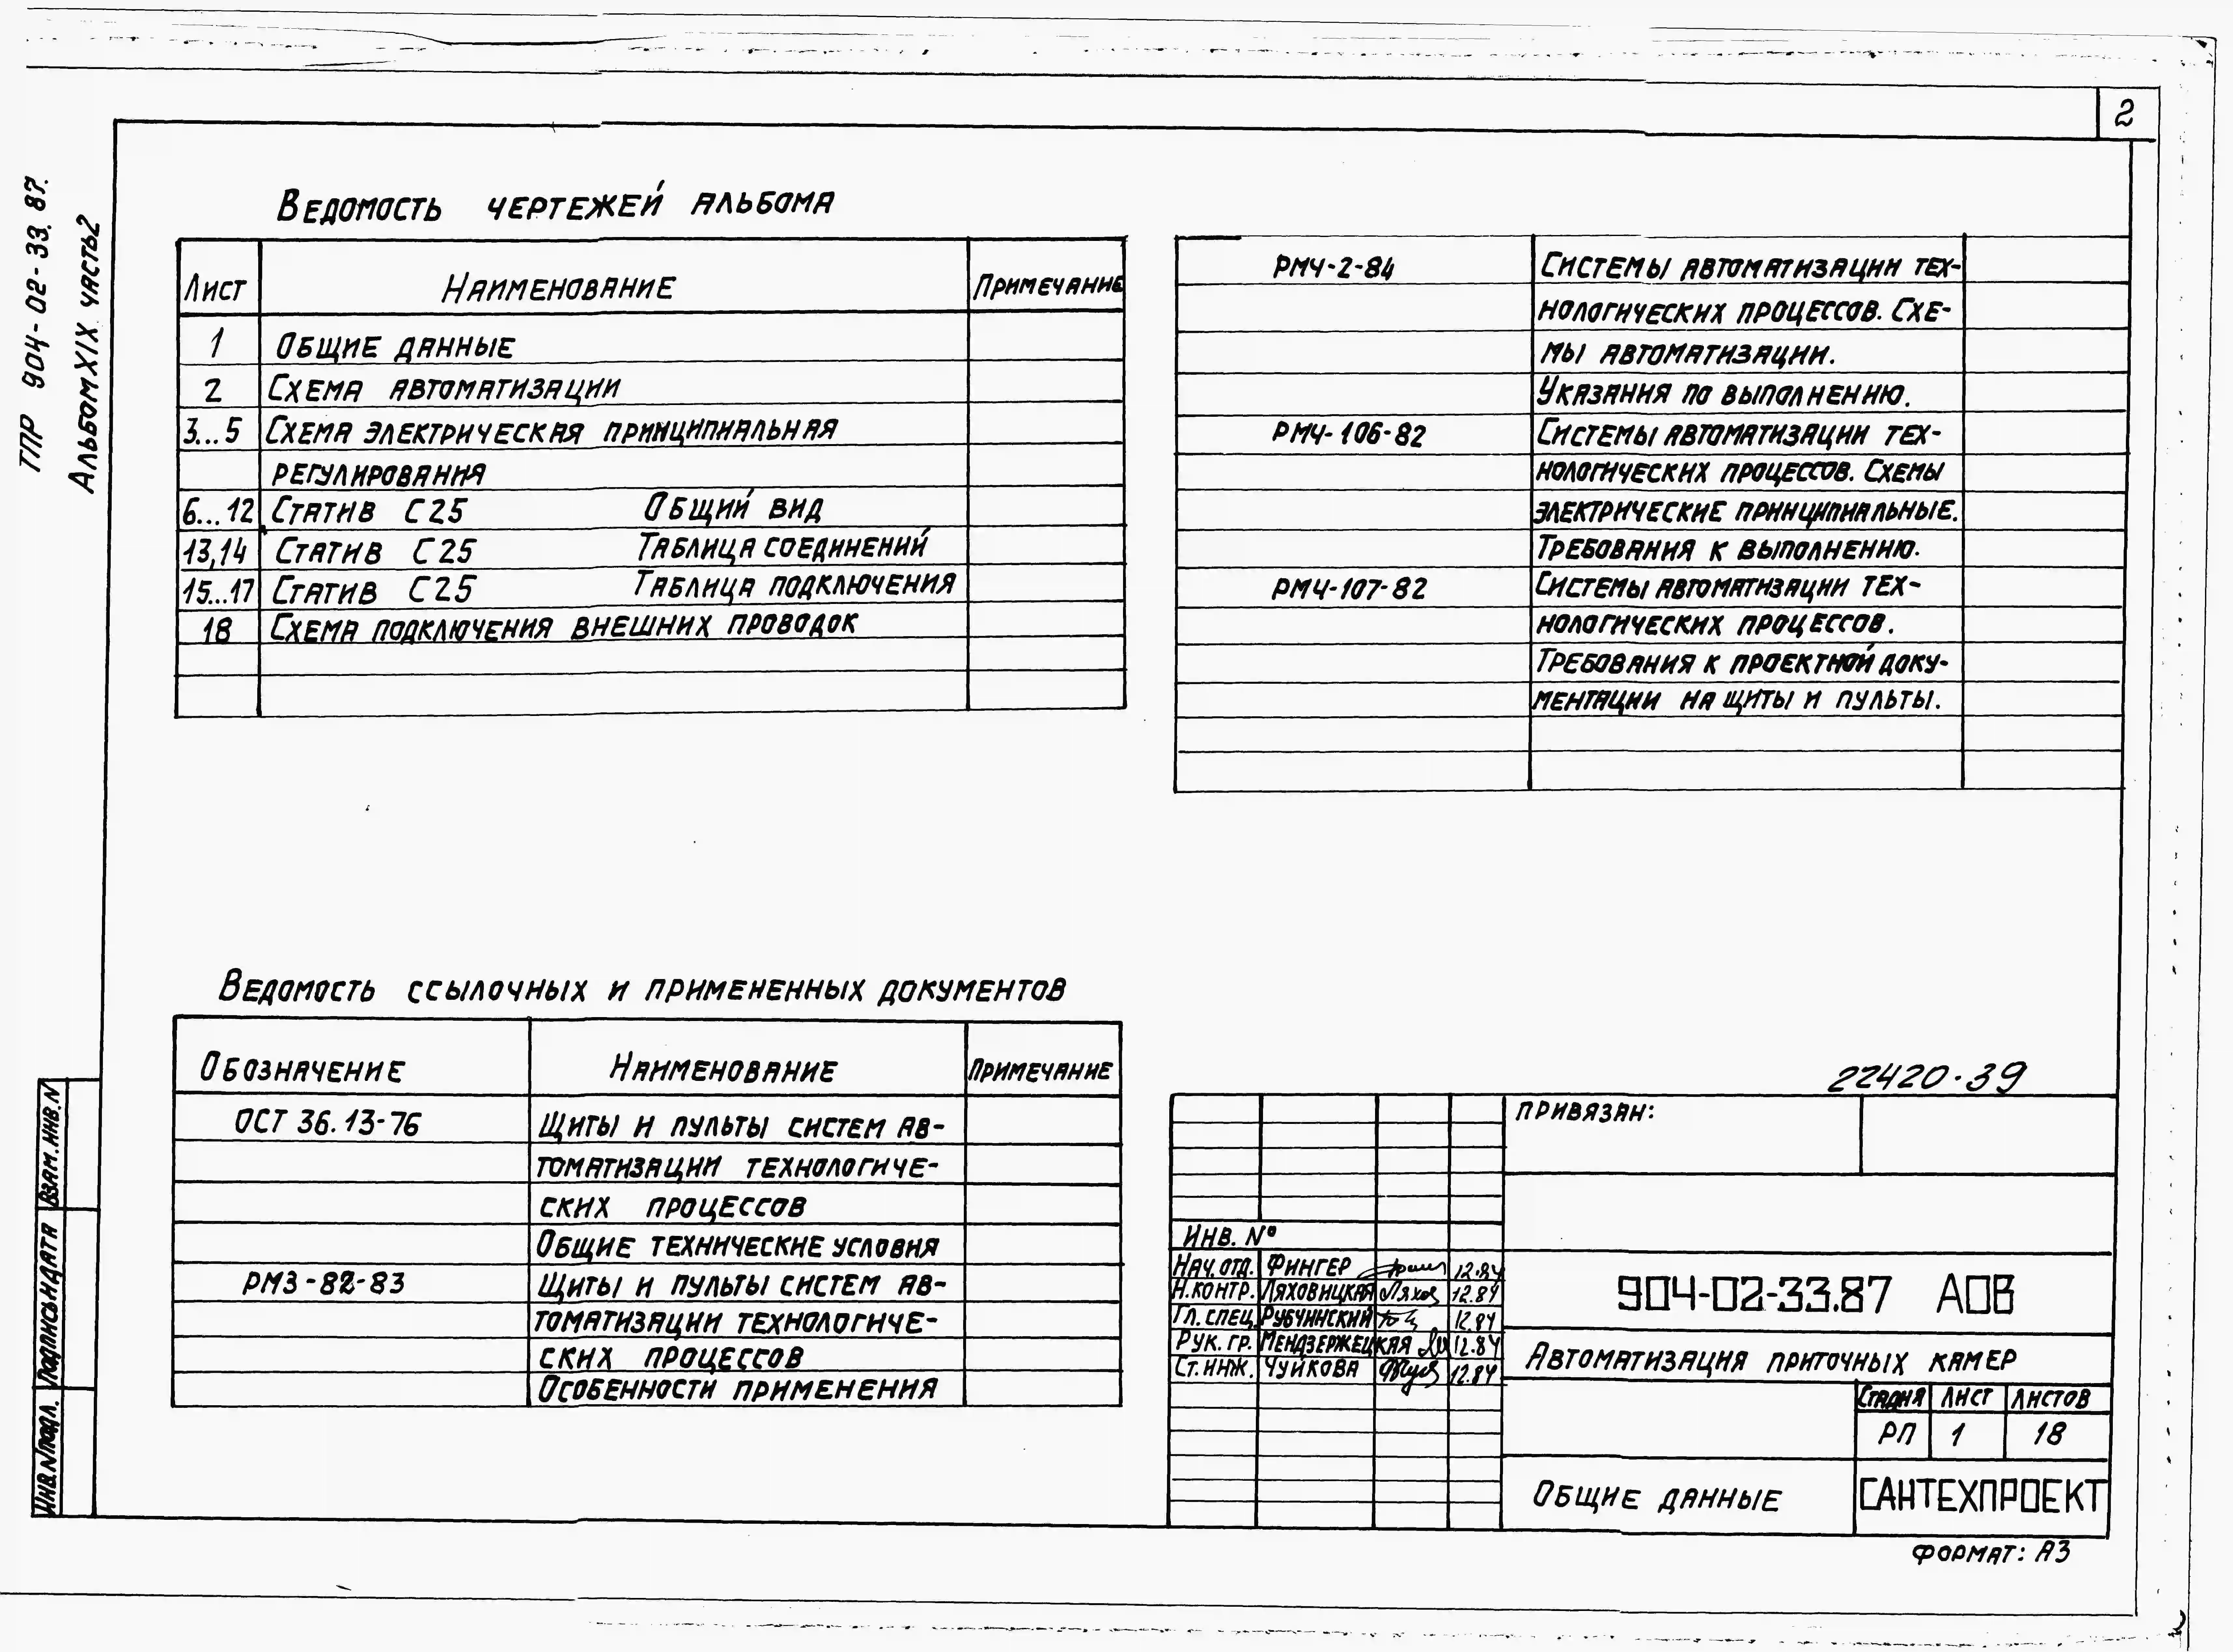 2
ТПР 904-02-33.87.
Альбом XIX. часть 2
Ведомость чертежей альбома
Лист Наименование Примечание
1 Общие данные
2 Схема автоматизации
3...5 Схема электрическая принципиальная
регулирования
6...12 Статив С25 Общий вид
13,14 Статив С25 Таблица соединений
15...17 Статив С25 Таблица подключения
18 Схема подключения внешних проводок
РМ4-2-84 Системы автоматизации тех-
нологических процессов. Схе-
мы автоматизации.
Указания по выполнению.
РМ4-106-82 Системы автоматизации тех-
нологических процессов. Схемы
электрические принципиальные.
Требования к выполнению.
РМ4-107-82 Системы автоматизации тех-
нологических процессов.
Требования к проектной доку-
ментации на щиты и пульты.
Ведомость ссылочных и примененных документов
Обозначение Наименование Примечание
ОСТ 36.13-76 Щиты и пульты систем ав-
томатизации технологиче-
ских процессов
Общие технические условия
РМ3-82-83 Щиты и пульты систем ав-
томатизации технологиче-
ских процессов
Особенности применения
Взам.инв.N
Подпись и дата
Инв.N подл.
22420-39
Привязан:
Инв. №
Нач.отд. Фингер 12.84
Н.контр. Ляховицкая 12.84
Гл.спец. Рубчинский 12.84
Рук. гр. Мендзержецкая 12.84
Ст.инж. Чуйкова 12.84
904-02-33.87 АОВ
Автоматизация приточных камер
Стадия Лист Листов
РП 1 18
Общие данные
САНТЕХПРОЕКТ
Формат: А3